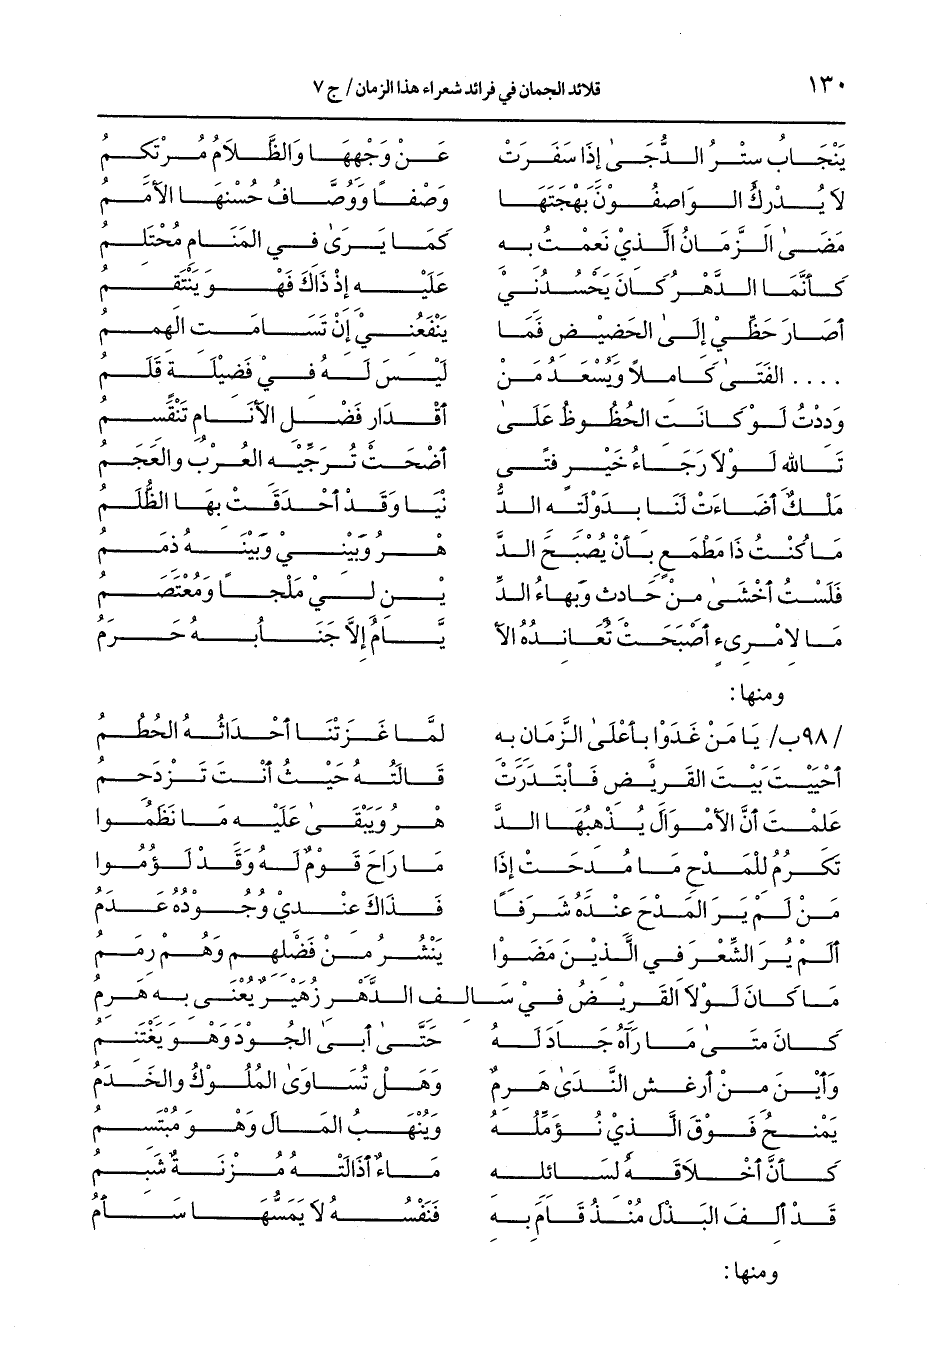 ١٣٠ قلائد الجمان في فرائد شعراء هذا الزمان / ج ٧
يَنْجَابُ سِتْرُ الدُّجَىٰ إِذَا سَفَرَتْ عَنْ وَجْهِهَا وَالظَّلَامُ مُرْتَكِمُ
لَا يُدْرِكُ الوَاصِفُونَ بَهْجَتَهَا وَصْفًا وَوُصَّافُ حُسْنِهَا الأُمَمُ
مَضَىٰ الزَّمَانُ الَّذِيْ نَعِمْتُ بِهِ كَمَا يَرَىٰ فِي المَنَامِ مُحْتَلِمُ
كَأَنَّمَا الدَّهْرُ كَانَ يَحْسُدُنِيْ عَلَيْهِ إِذْ ذَاكَ فَهْوَ يَنْتَقِمُ
أَصَارَ حَظِّيْ إِلَىٰ الحَضِيْضِ فَمَا يَنْفَعُنِيْ إِنْ تَسَامَتِ الهِمَمُ
.... الفَتَىٰ كَامِلاً وَيُسْعَدُ مَنْ لَيْسَ لَهُ فِيْ فَضِيْلَةٍ قَلَمُ
وَدِدْتُ لَوْ كَانَتِ الحُظُوظُ عَلَىٰ أَقْدَارِ فَضْلِ الأَنَامِ تَنْقَسِمُ
تَاللهِ لَوْلَا رَجَاءُ خَيْرِ فَتًى أَضْحَتْ تُرَجِّيْهِ العُرْبُ وَالعَجَمُ
مَلْكٌ أَضَاءَتْ لَنَا بِدَوْلَتِهِ الدُّ نْيَا وَقَدْ أَحْدَقَتْ بِهَا الظُّلَمُ
مَا كُنْتُ ذَا مَطْمَعٍ بِأَنْ يُصْبِحَ الدَّ هْرُ وَبَيْنِيْ وَبَيْنَهُ ذِمَمُ
فَلَسْتُ أَخْشَىٰ مِنْ حَادِثٍ وَبَهَاءُ الدِّ يْنِ لِيْ مَلْجَأً وَمُعْتَصَمُ
مَا لِامْرِىءٍ أَصْبَحَتْ تُعَانِدُهُ الأَ يَّامُ إِلَّا جَنَابُهُ حَرَمُ
ومنها:
/٩٨ب/ يَا مَنْ غَدَوْا بِأَعْلَىٰ الزَّمَانِ بِهِ لَمَّا غَزَتْنَا أَحْدَاثُهُ الحُطُمُ
أَحْيَيْتَ بَيْتَ القَرِيْضِ فَأَبْتَدَرَتْ قَالَتُهُ حَيْثُ أَنْتَ تَزْدَحِمُ
عَلِمْتَ أَنَّ الأَمْوَالَ يُذْهِبُهَا الدَّ هْرُ وَيَبْقَىٰ عَلَيْهِ مَا نَظَمُوا
تَكْرُمُ لِلْمَدْحِ مَا مُدِحَتْ إِذَا مَا رَاحَ قَوْمٌ لَهُ وَقَدْ لَؤُمُوا
مَنْ لَمْ يَرَ المَدْحَ عِنْدَهُ شَرَفًا فَذَاكَ عِنْدِيْ وُجُوْدُهُ عَدَمُ
أَلَمْ يُرَ الشِّعْرَ فِي الَّذِيْنَ مَضَوْا يَنْشُرُ مِنْ فَضْلِهِمْ وَهُمْ رِمَمُ
مَا كَانَ لَوْلَا القَرِيْضُ فِيْ سَالِفِ الدَّهْرِ زُهَيْرٌ يُعْنَىٰ بِهِ هَرِمُ
كَانَ مَتَىٰ مَا رَآهُ جَادَ لَهُ حَتَّىٰ أَبَىٰ الجُودَ وَهْوَ يَغْتَنِمُ
وَأَيْنَ مِنْ أَرْغَشِ النَّدَىٰ هَرِمٌ وَهَلْ تُسَاوَىٰ المُلُوكُ وَالخَدَمُ
يَمْنَحُ فَوْقَ الَّذِيْ نُؤَمِّلُهُ وَيَنْهَبُ المَالَ وَهْوَ مُبْتَسِمُ
كَأَنَّ أَخْلَاقَهُ لِسَائِلِهِ مَاءٌ أَذَالَتْهُ مُزْنَةٌ شَبِمُ
قَدْ أَلِفَ البَذْلَ مُنْذُ قَامَ بِهِ فَنَفْسُهُ لَا يَمَسُّهَا سَأَمُ
ومنها: